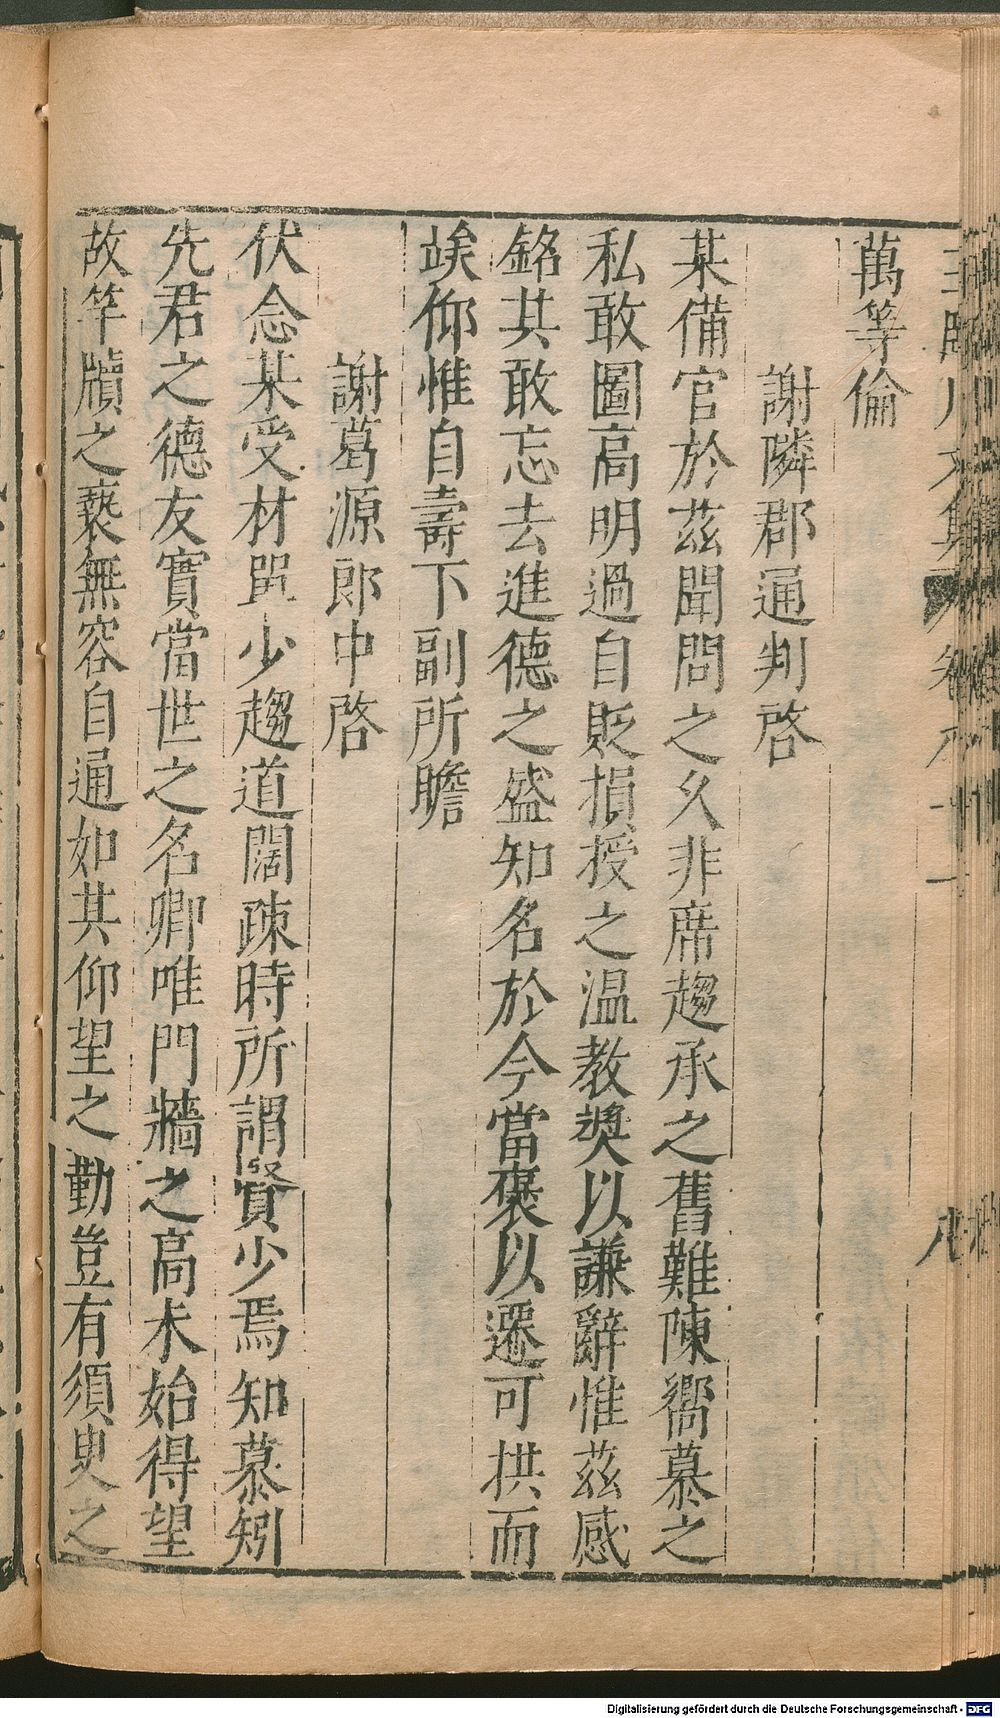 萬等倫
謝隣郡通判啓
某備官於茲聞問之久非席趨承之舊難陳嚮慕之
私敢圖高明過自貶損授之溫教奬以謙辭惟茲感
銘其敢忘去進德之盛知名於今當褒以遷可拱而
竢仰惟自壽下副所瞻
謝葛源郎中啓
伏念某受材單少趨道闊疎時所謂賢少焉知慕矧
先君之德友實當世之名卿唯門牆之高未始得望
故竿牘之褻無容自通如其仰望之勤豈有須臾之
Digitalisierung gefördert durch die Deutsche Forschungsgemeinschaft - DFG